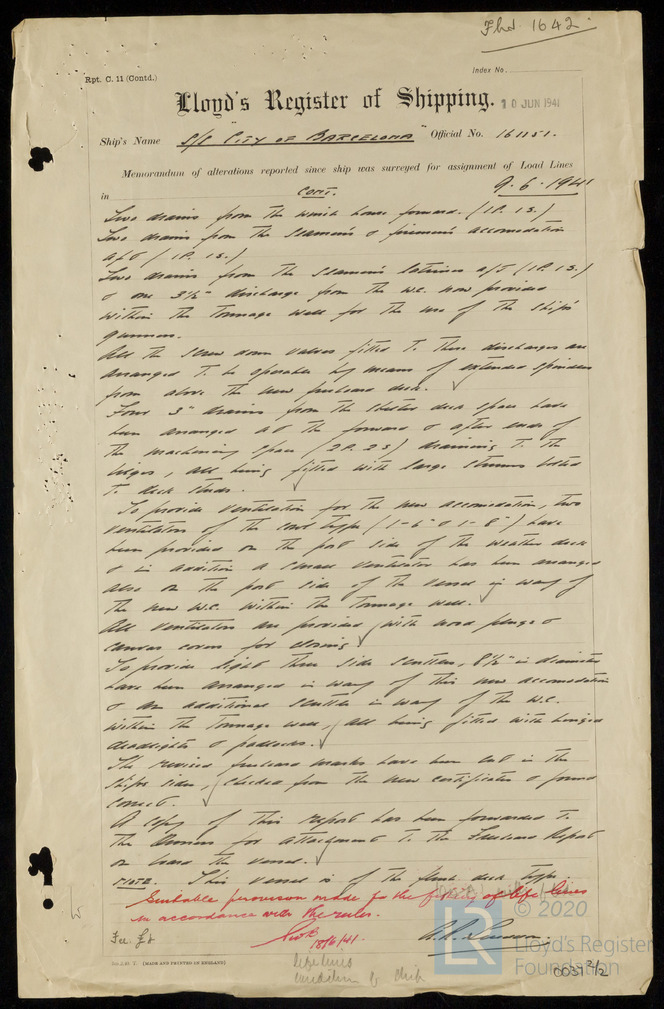 Fbd. 1642.
Index No.
Rpt. C. 11 (Contd.)
Lloyd's Register of Shipping.
10 JUN 1941
Ship's Name S/S "CITY OF BARCELONA" Official No. 161151.
Memorandum of alterations reported since ship was surveyed for assignment of Load Lines
in CONT. 9.6.1941
Two drains from the winch house forward. (1P. 1S.)
Two drains from the Seamen's & firemen's accomodation
aft (1P. 1S.)
Two drains from the Seamen's latrines aft (1P. 1S.)
& one 3½" discharge from the W.C. now provided
within the Tonnage well for the use of the Ship's
gunners.
All the screw down valves fitted to these discharges are
arranged to be operated by means of extended spindles
from above the new freeboard deck.
Four 3" drains from the shelter deck space have
been arranged at the forward & after ends of
the machinery space (2P. 2S) draining to the
bilges, all being fitted with large strums bolted
to deck studs.
To provide ventilation for the new accomodation, two
ventilators of the cowl type (1-6" & 1-8") have
been provided on the port side of the weather deck
& in addition a small ventilator has been arranged
also on the port side of the vessel in way of
the new W.C. within the Tonnage well.
All ventilators are provided with wood plugs &
canvas covers for closing
To provide light three side scuttles, 8½" in diameter
have been arranged in way of this new accomodation
& an additional scuttle in way of the W.C.
within the Tonnage well, all being fitted with hinged
deadlights & padlocks.
The revised freeboard marks have been cut in the
ships sides, checked from the new certificates & found
correct.
A copy of this report has been forwarded to
the Owners for attachment to the Freeboard Report
on board the vessel.
NOTE. This vessel is of the flush deck type
Suitable provision made for the fitting of life lines
in accordance with the rules.
18/6/41.
Fee £
© 2020
LR
Lloyd's Register
Foundation
0037 2/2
(MADE AND PRINTED IN ENGLAND)